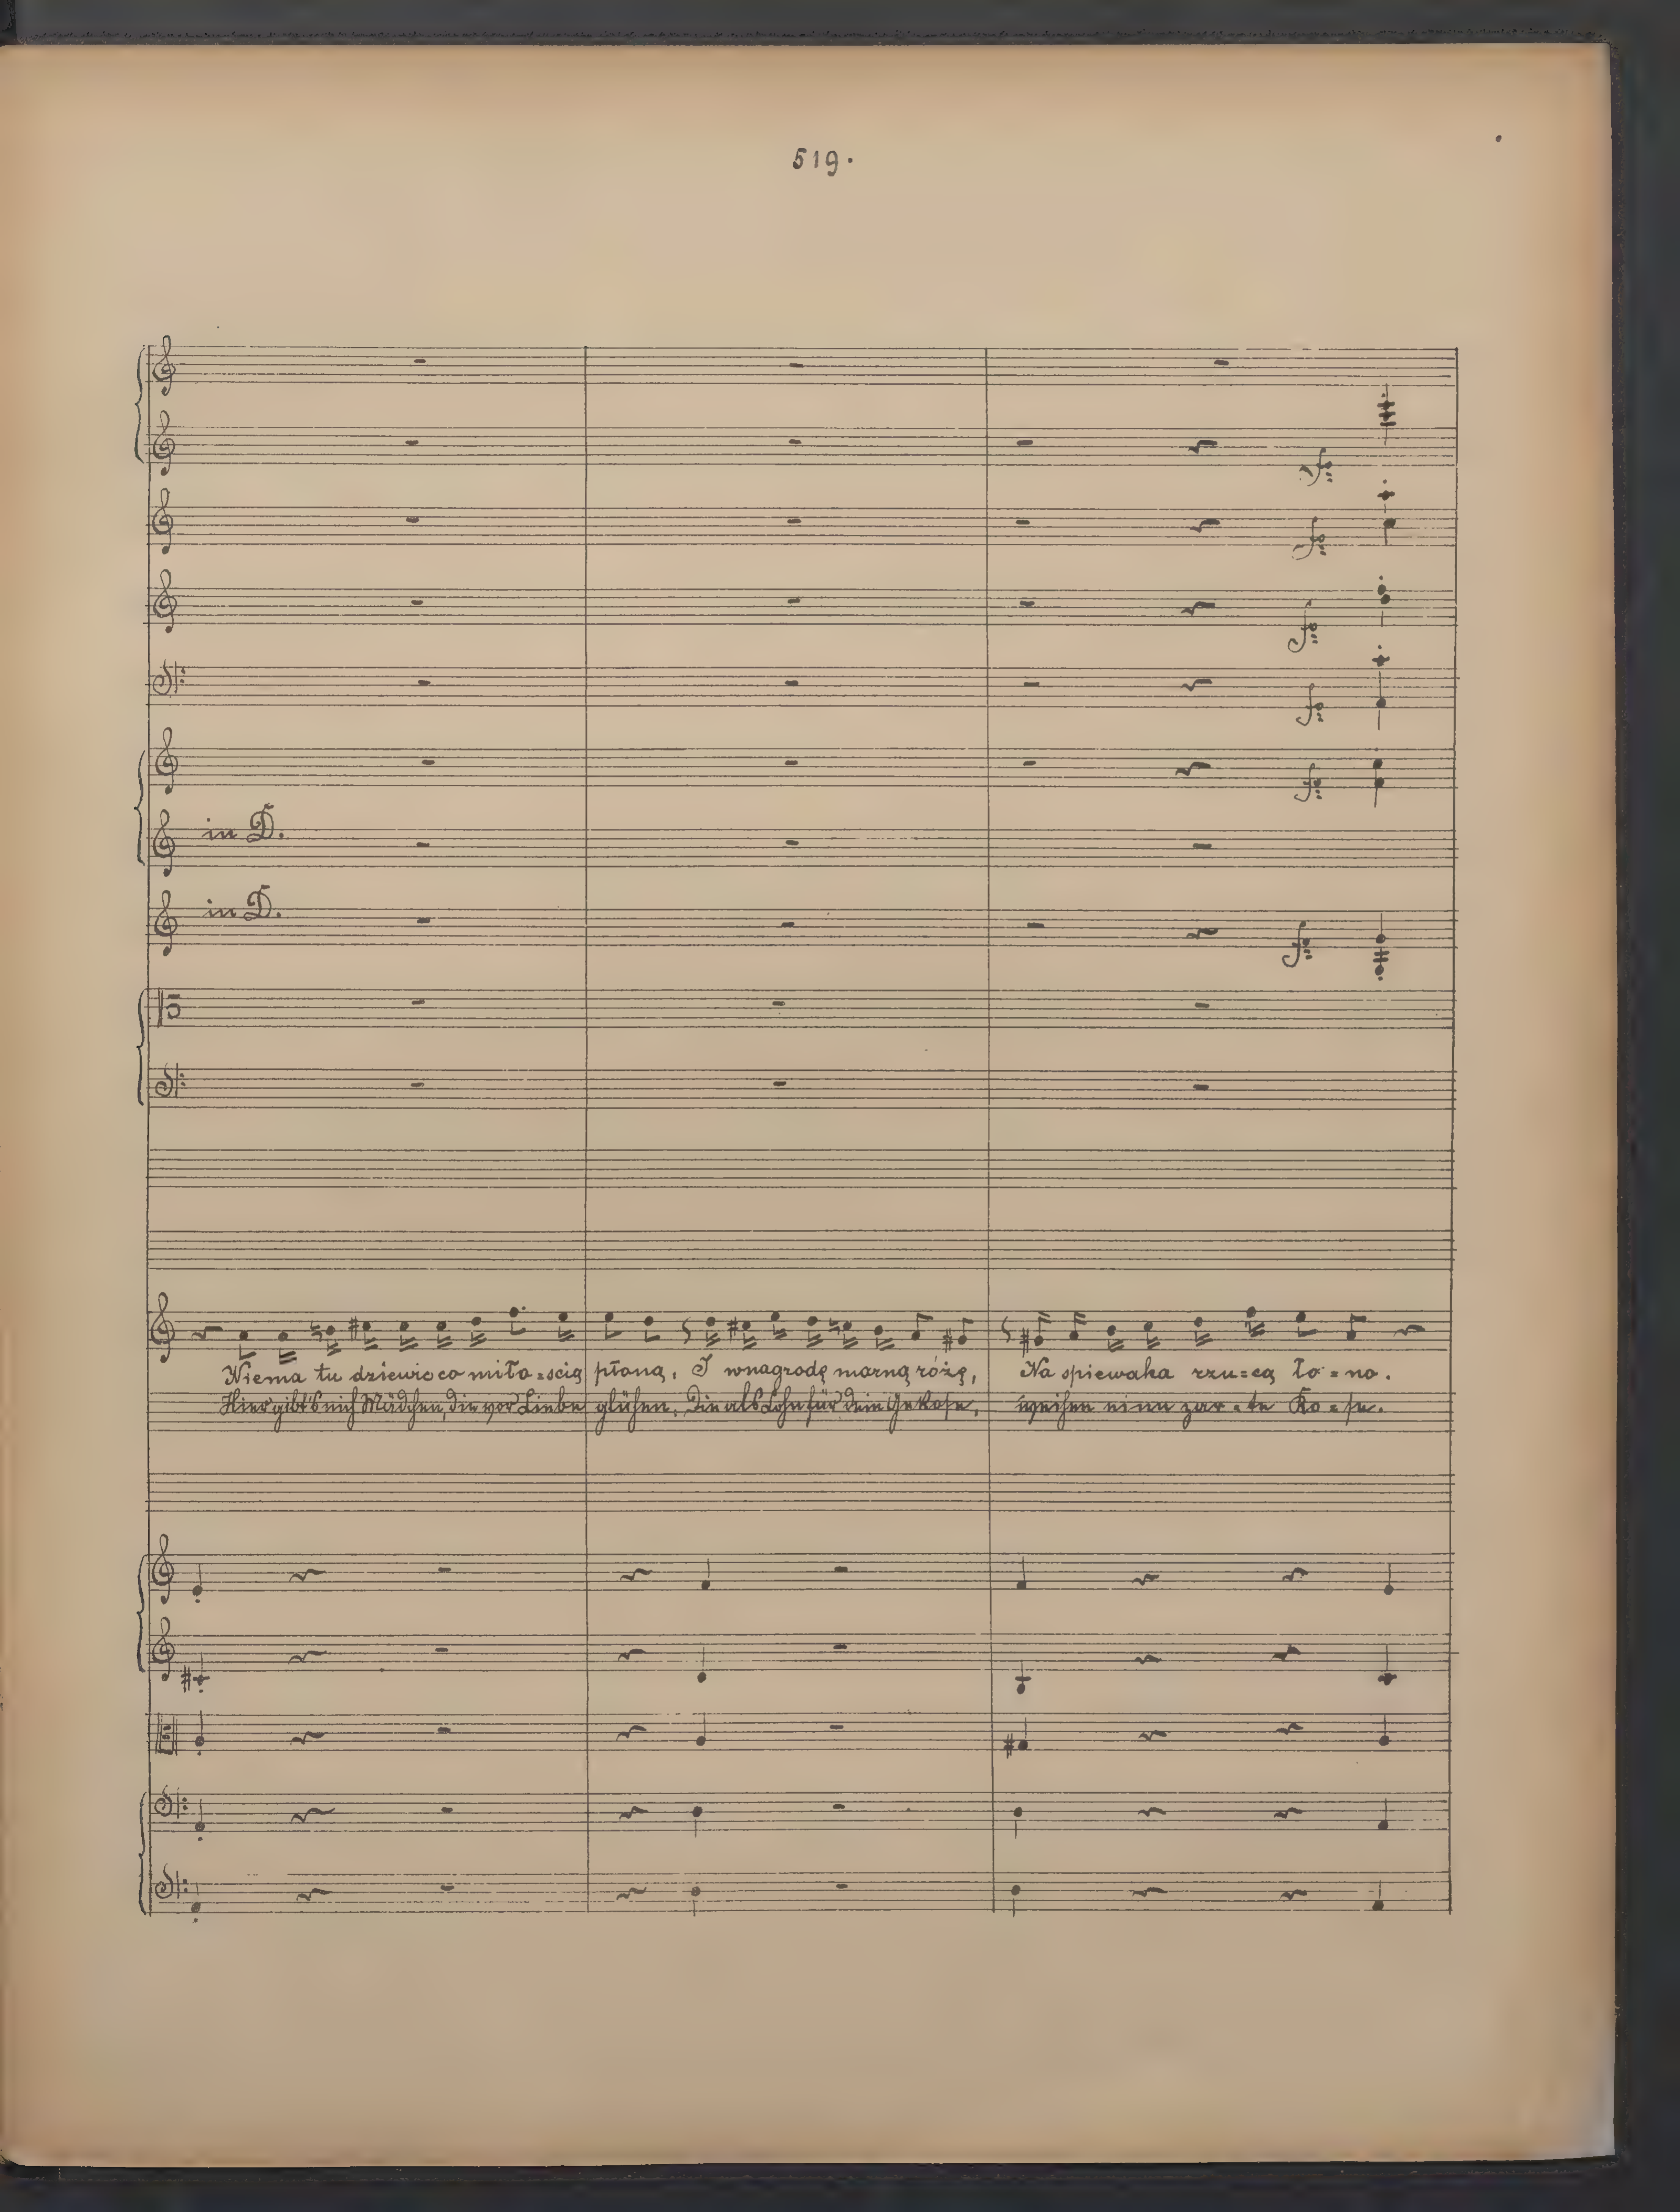 519.
in D.
in D.
Niema tu dziewic co miło=scią płoną, I wnagrodę marną różę, Na spiewaka rzu=cą ło=no.
Hier gibt's nich Mädchen, die vor Liebe glühen, Die als Lohn für dein Gekose, weihen eine zar=te Ro=se.